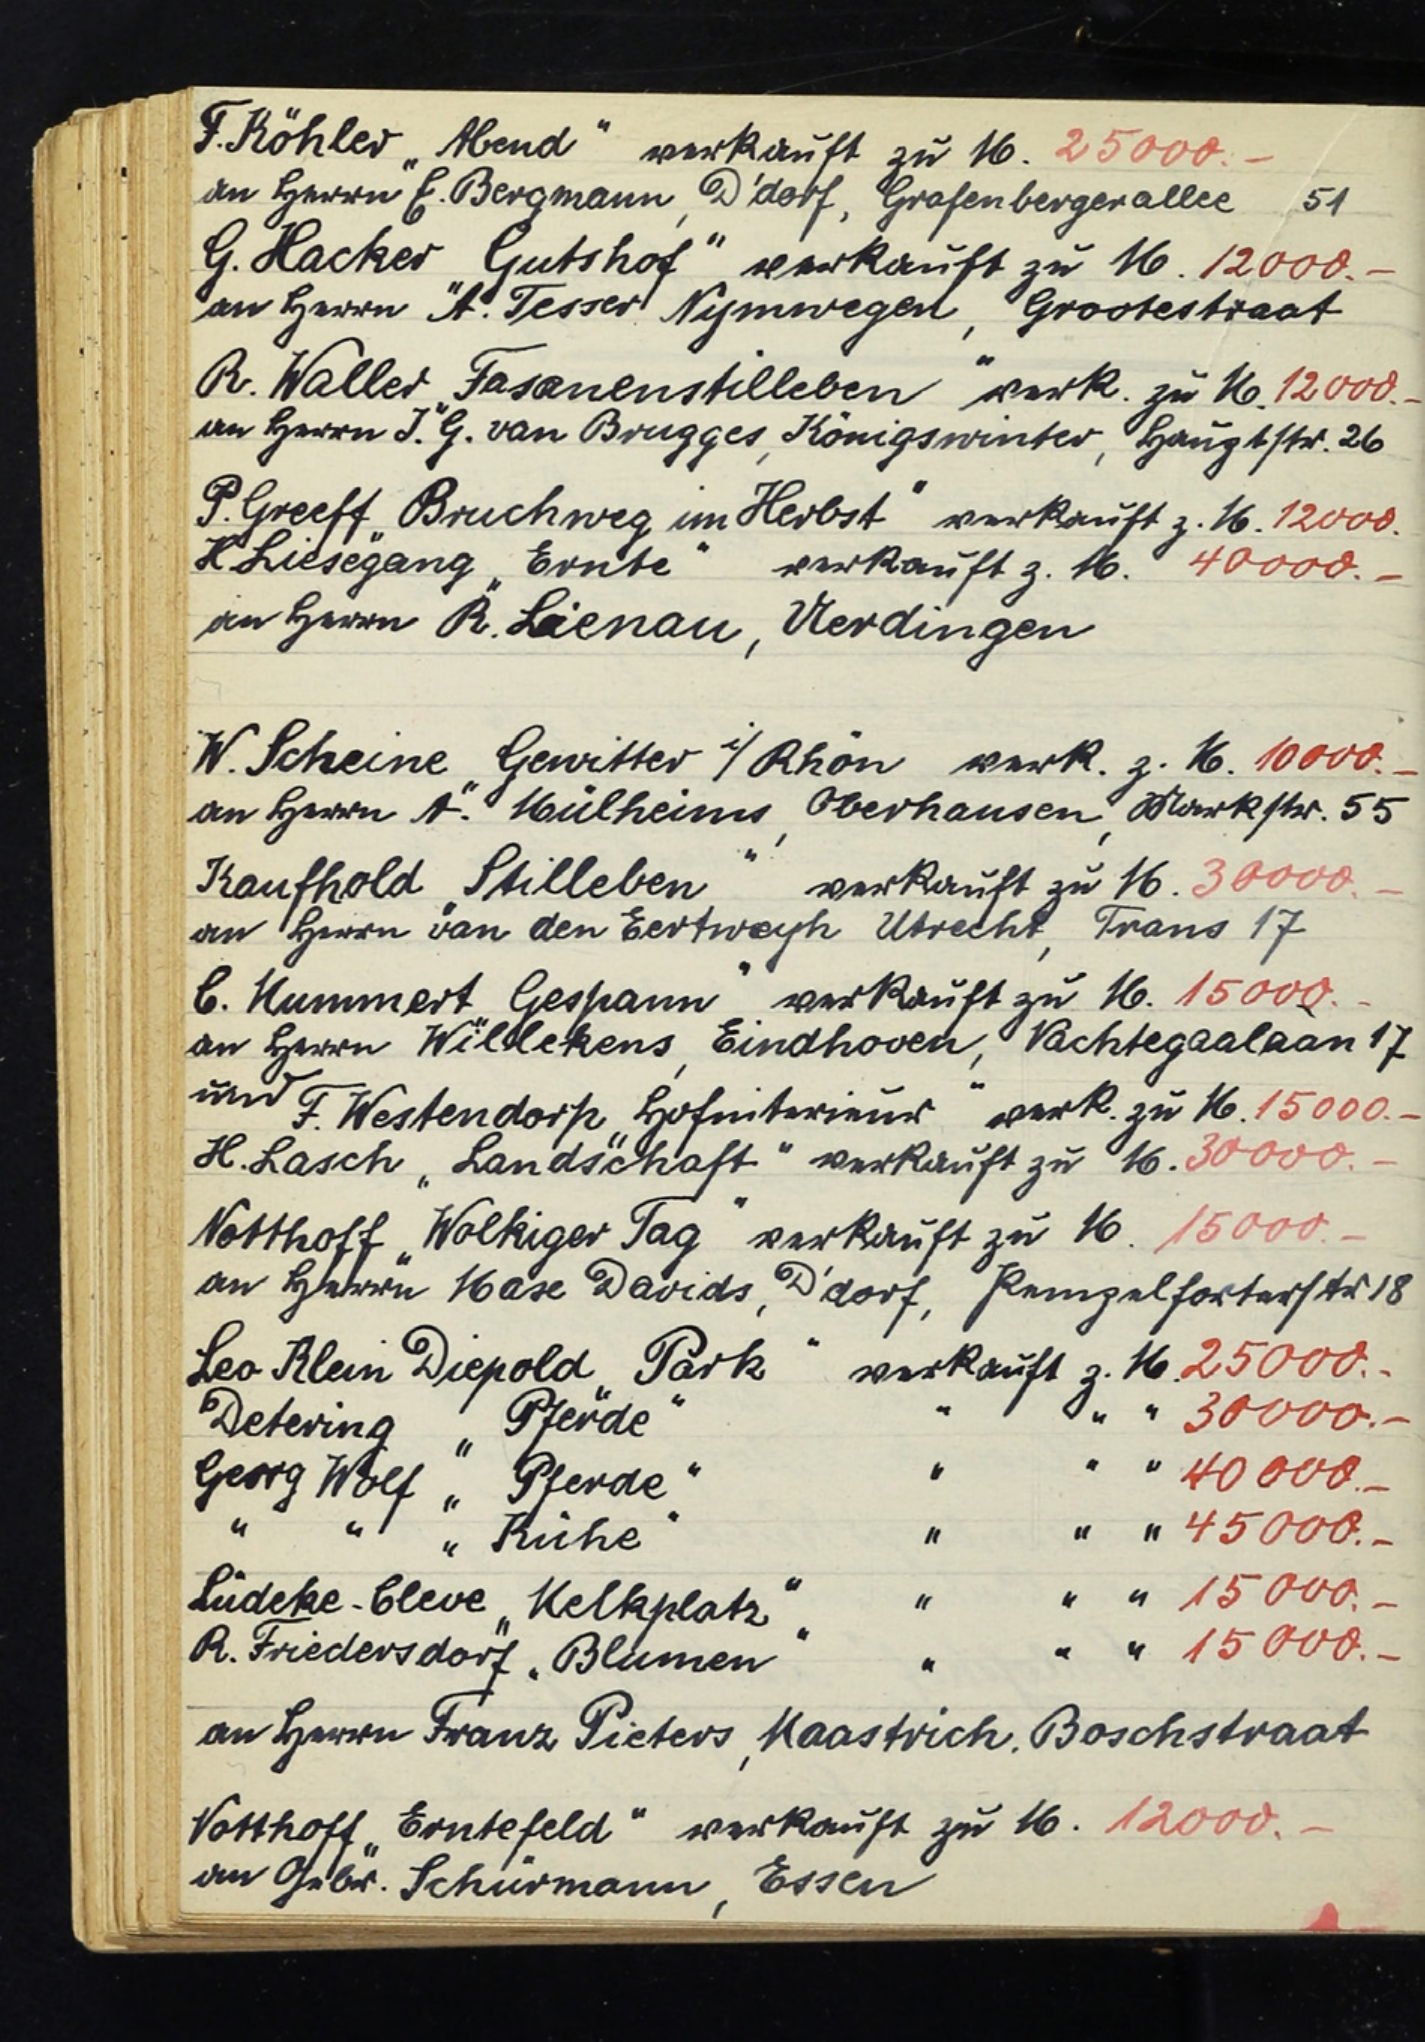 F. Köhler „Abend" verkauft zu M. 25000.–
an Herrn E. Bergmann, D'dorf, Grafenbergerallee 51
G. Hacker „Gutshof" verkauft zu M. 12000.–
an Herrn A. Tesser Nymwegen, Grootestraat
R. Waller „Fasanenstilleben" verk. zu M. 12000.–
an Herrn J. G. van Brugges, Königswinter, Hauptstr. 26
P. Greeff „Bruchweg im Herbst" verkauft z. M. 12000.
H Liesegang „Ernte" verkauft z. M. 40000.–
an Herrn R. Lienau, Uerdingen
W. Scheine „Gewitter i/ Rhön verk. z. M. 10000.–
an Herrn A. Mülheims, Oberhausen, Markstr. 55
Kaufhold „Stilleben" verkauft zu M. 30000.–
an Herrn van den Eertwegh Utrecht, Trans 17
C. Mummert „Gespann" verkauft zu M. 15000.–
an Herrn Willekens, Eindhoven, Nachtegaalaan 17
und F. Westendorp „Hofinterieur" verk. zu M. 15000.–
H. Lasch „Landschaft" verkauft zu M. 30000.–
Notthoff „Wolkiger Tag" verkauft zu M. 15000.–
an Herrn Mase Davids, D'dorf, Pempelforterstr 18
Leo Klein Diepold „Park" verkauft z. M. 25000.–
Detering „Pferde" " " " 30000.–
Georg Wolf „Pferde" " " " 40000.–
" " „Kühe" " " " 45000.–
Lüdeke-Cleve „Melkplatz" " " " 15000.–
R. Friedersdorf „Blumen" " " " 15000.–
an Herrn Franz Pieters, Maastrich. Boschstraat
Notthoff „Erntefeld" verkauft zu M. 12000.–
an Gebr. Schürmann, Essen